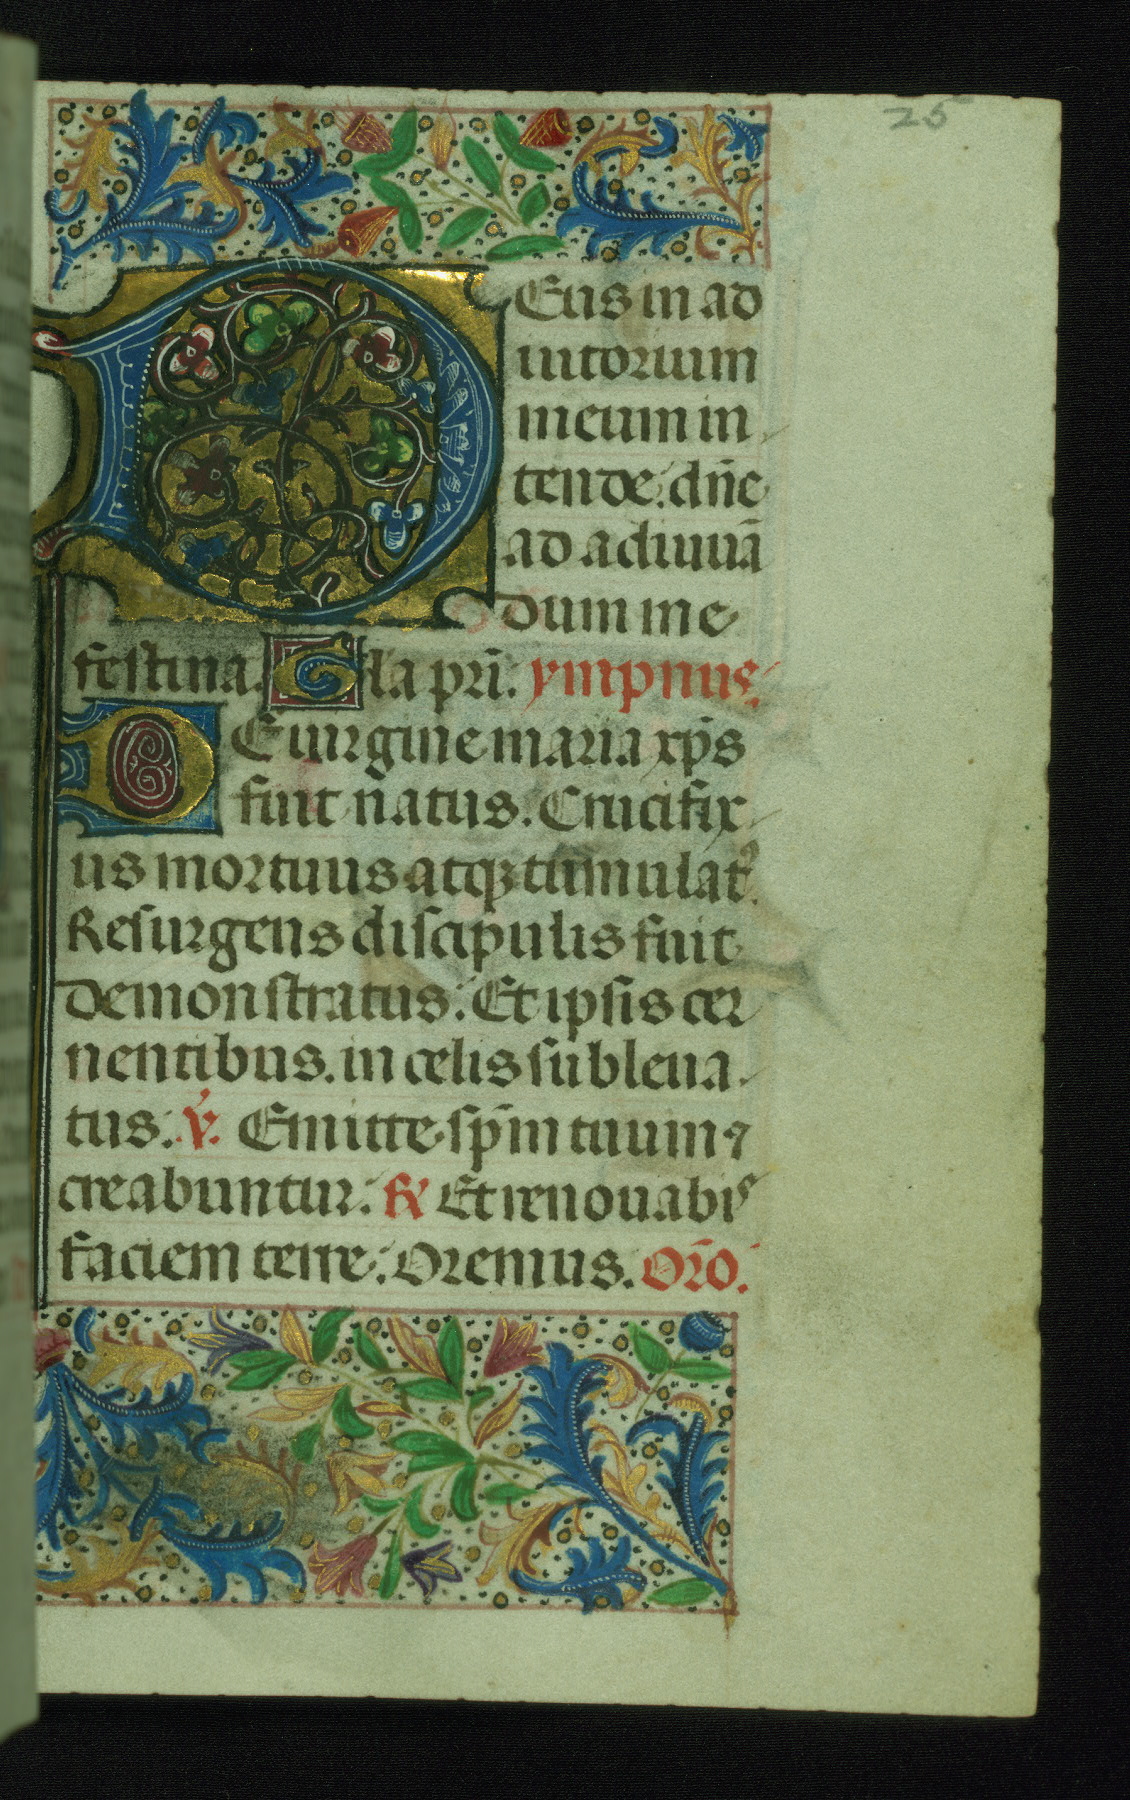 25
DEus in ad
iutorium
meum in
tende: dn̄e
ad adiuuā
dum me
festina. Gla pri̅. ympnus.
DE uirgine maria xp̄s
fuit natus. Crucifix
us mortuus atqꝫ tumulatꝰ.
Resurgens discipulis fuit
demonstratus: Et ipsis cer
nentibus. in celis subleua
tus: ℣. Emitte sp̄m tuum ⁊
creabuntur: ℟ Et renouabis
faciem terre: Oremus. Or̄o.